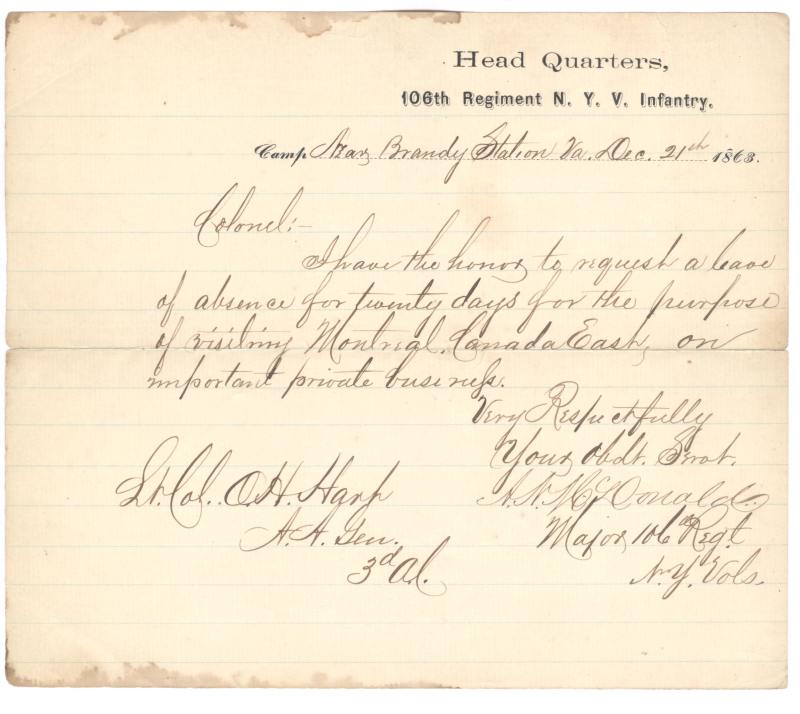 Head Quarters,
106th Regiment N. Y. V. Infantry.
Camp Near Brandy Station Va. Dec. 21th 1863.
Colonel:—
I have the honor to request a leave
of absence for twenty days for the purpose
of visiting Montreal, Canada East, on
important private business.
Very Respectfully
Your obdt. Servt.
A. N. McDonald
Major 106th Regt
N. Y. Vols.
Lt. Col. O. H. Hart
A. A. Gen.
3d A.C.